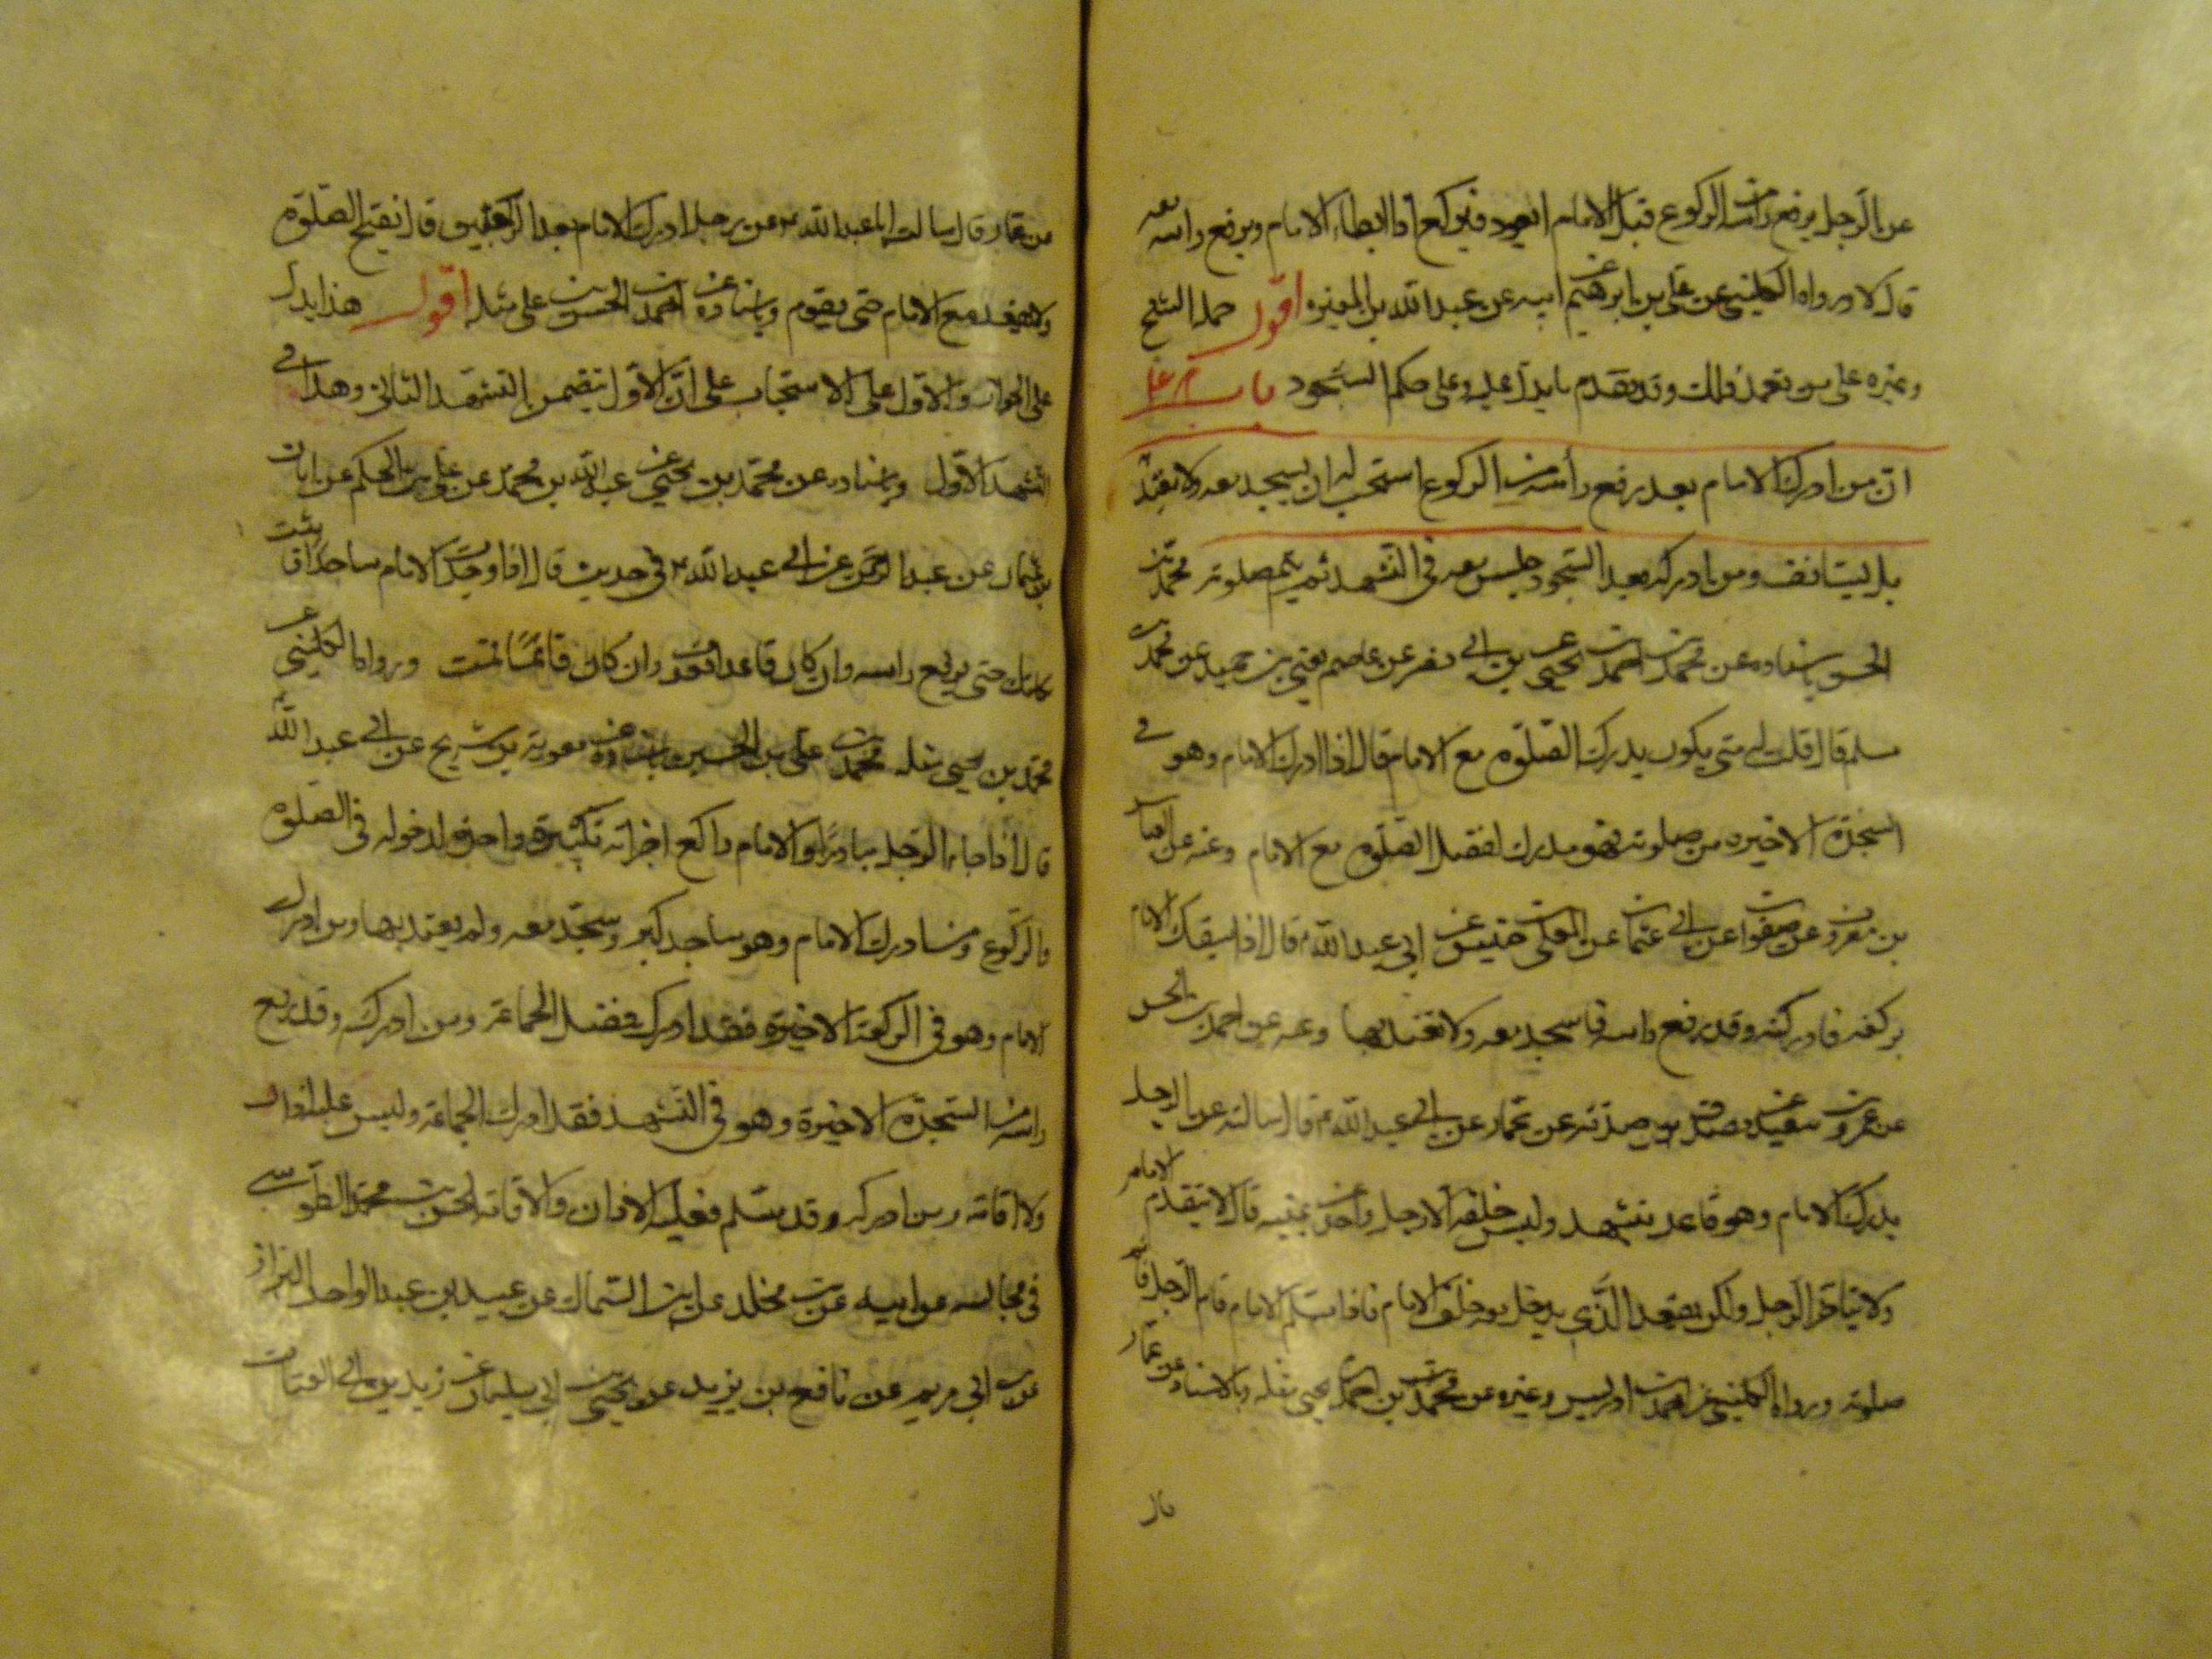 عن الرجل يرفع راسه من الركوع قبل الامام ايعود فيركع اذا ابطاء الامام ويرفع راسه معه
قال لا ورواه الكليني عن علي بن ابرهيم عن ابيه عن عبد الله بن المغيره اقول حمله الشيخ
وغيره على من تعمد ذلك وقد تقدم ما يدل عليه وعلى حكم السجود باب
ان من ادرك الامام بعد رفع رأسه من الركوع استحب له ان يسجد معه ولا يعتد
بل يستانف ومن ادركه بعد السجود جلس معه في التشهد ثم يتم صلوته محمد بن
الحسن باسناده عن محمد بن احمد بن يحيى عن بن ابي نصر عن عاصم يعني بن حميد عن محمد بن
مسلم قال قلت له متى يكون يدرك الصلوة مع الامام قال اذا ادرك الامام وهو في
السجدة الاخيره من صلوته فهو مدرك لفضل الصلوة مع الامام وعنه عن العباس
بن معروف عن صفوان عن ابي عثمان عن المعلى بن خنيس عن ابي عبد الله ع قال اذا سبقك الامام
بركعه فادركته وقد رفع راسه فاسجد معه ولا تعتد بها وعنه عن احمد بن الحسن
عن عمرو بن سعيد عن مصدق بن صدقه عن عمار عن ابي عبد الله ع قال سالته عن الرجل
يدرك الامام وهو قاعد يتشهد وليس خلفه الا رجل واحد عن يمينه قال لا يتقدم الامام
ولا يتاخر الرجل ولكن يقعد الذي يدخل معه خلف الامام فاذا سلم الامام قام الرجل فاتم
صلوته ورواه الكليني عن احمد بن ادريس وغيره عن محمد بن احمد بن يحيى مثله وبالاسناد عن عمار
قال
بن عمار قال سالت ابا عبد الله ع عن رجل ادرك الامام بعد الركعتين قال يفتتح الصلوة
ولا يقعد مع الامام حتى يقوم وباسناده عن احمد بن الحسن بن علي مثله اقول هذا يدل
على الجواز والاول على الاستحباب على ان الاول يتضمن التشهد الثاني وهذا في
التشهد الاول وباسناده عن محمد بن يحيى عن عبد الله بن محمد عن علي بن الحكم عن ابان
بن عثمان عن عبد الرحمن عن ابي عبد الله ع في حديث قال اذا وجدت الامام ساجدا فاثبت
مكانك حتى يرفع راسه وان كان قاعدا قعدت وان كان قائما قمت ورواه الكليني عن
محمد بن يحيى مثله محمد بن علي بن الحسين باسناده عن معوية بن شريح عن ابي عبد الله ع
قال اذا جاء الرجل مبادرا والامام راكع اجزاته تكبيرة واحدة لدخوله في الصلوة
والركوع ومن ادرك الامام وهو ساجد كبر وسجد معه ولم يعتد بها ومن ادرك
الامام وهو في الركعة الاخيرة فقد ادرك فضل الجماعة ومن ادركه وقد رفع
راسه من السجدة الاخيرة وهو في التشهد فقد ادرك الجماعة وليس عليه اذان
ولا اقامة ومن ادركه وقد سلم فعليه الاذان والاقامة الحسن بن محمد الطوسي
في مجالسه عن ابيه عن بن مخلد عن ابن السماك عن عبيد بن عبد الواحد البزاز
عن بن ابي مريم عن نافع بن يزيد عن يحيى بن ابي سليمان عن زيد بن ابي العتاب